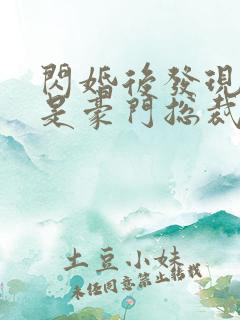 閃婚後發現
是豪門總裁
土豆小妹
未经同意禁止转载